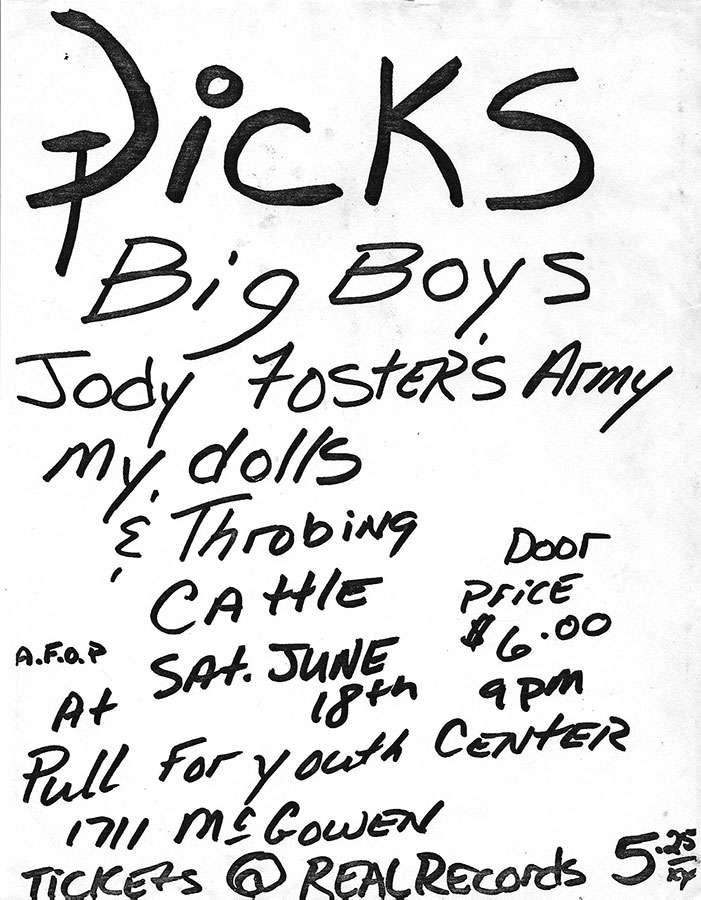 DicKS
Big Boys
Jody Foster's Army
my dolls
& Throbing
CAttlE
Door
PriCE
$6.00
9 pm
A.F.O.P
SAt. JUNE
18th
At
Pull For youth CENtER
1711 McGOWEN
TiCKEts @ REAL REcords 5.25